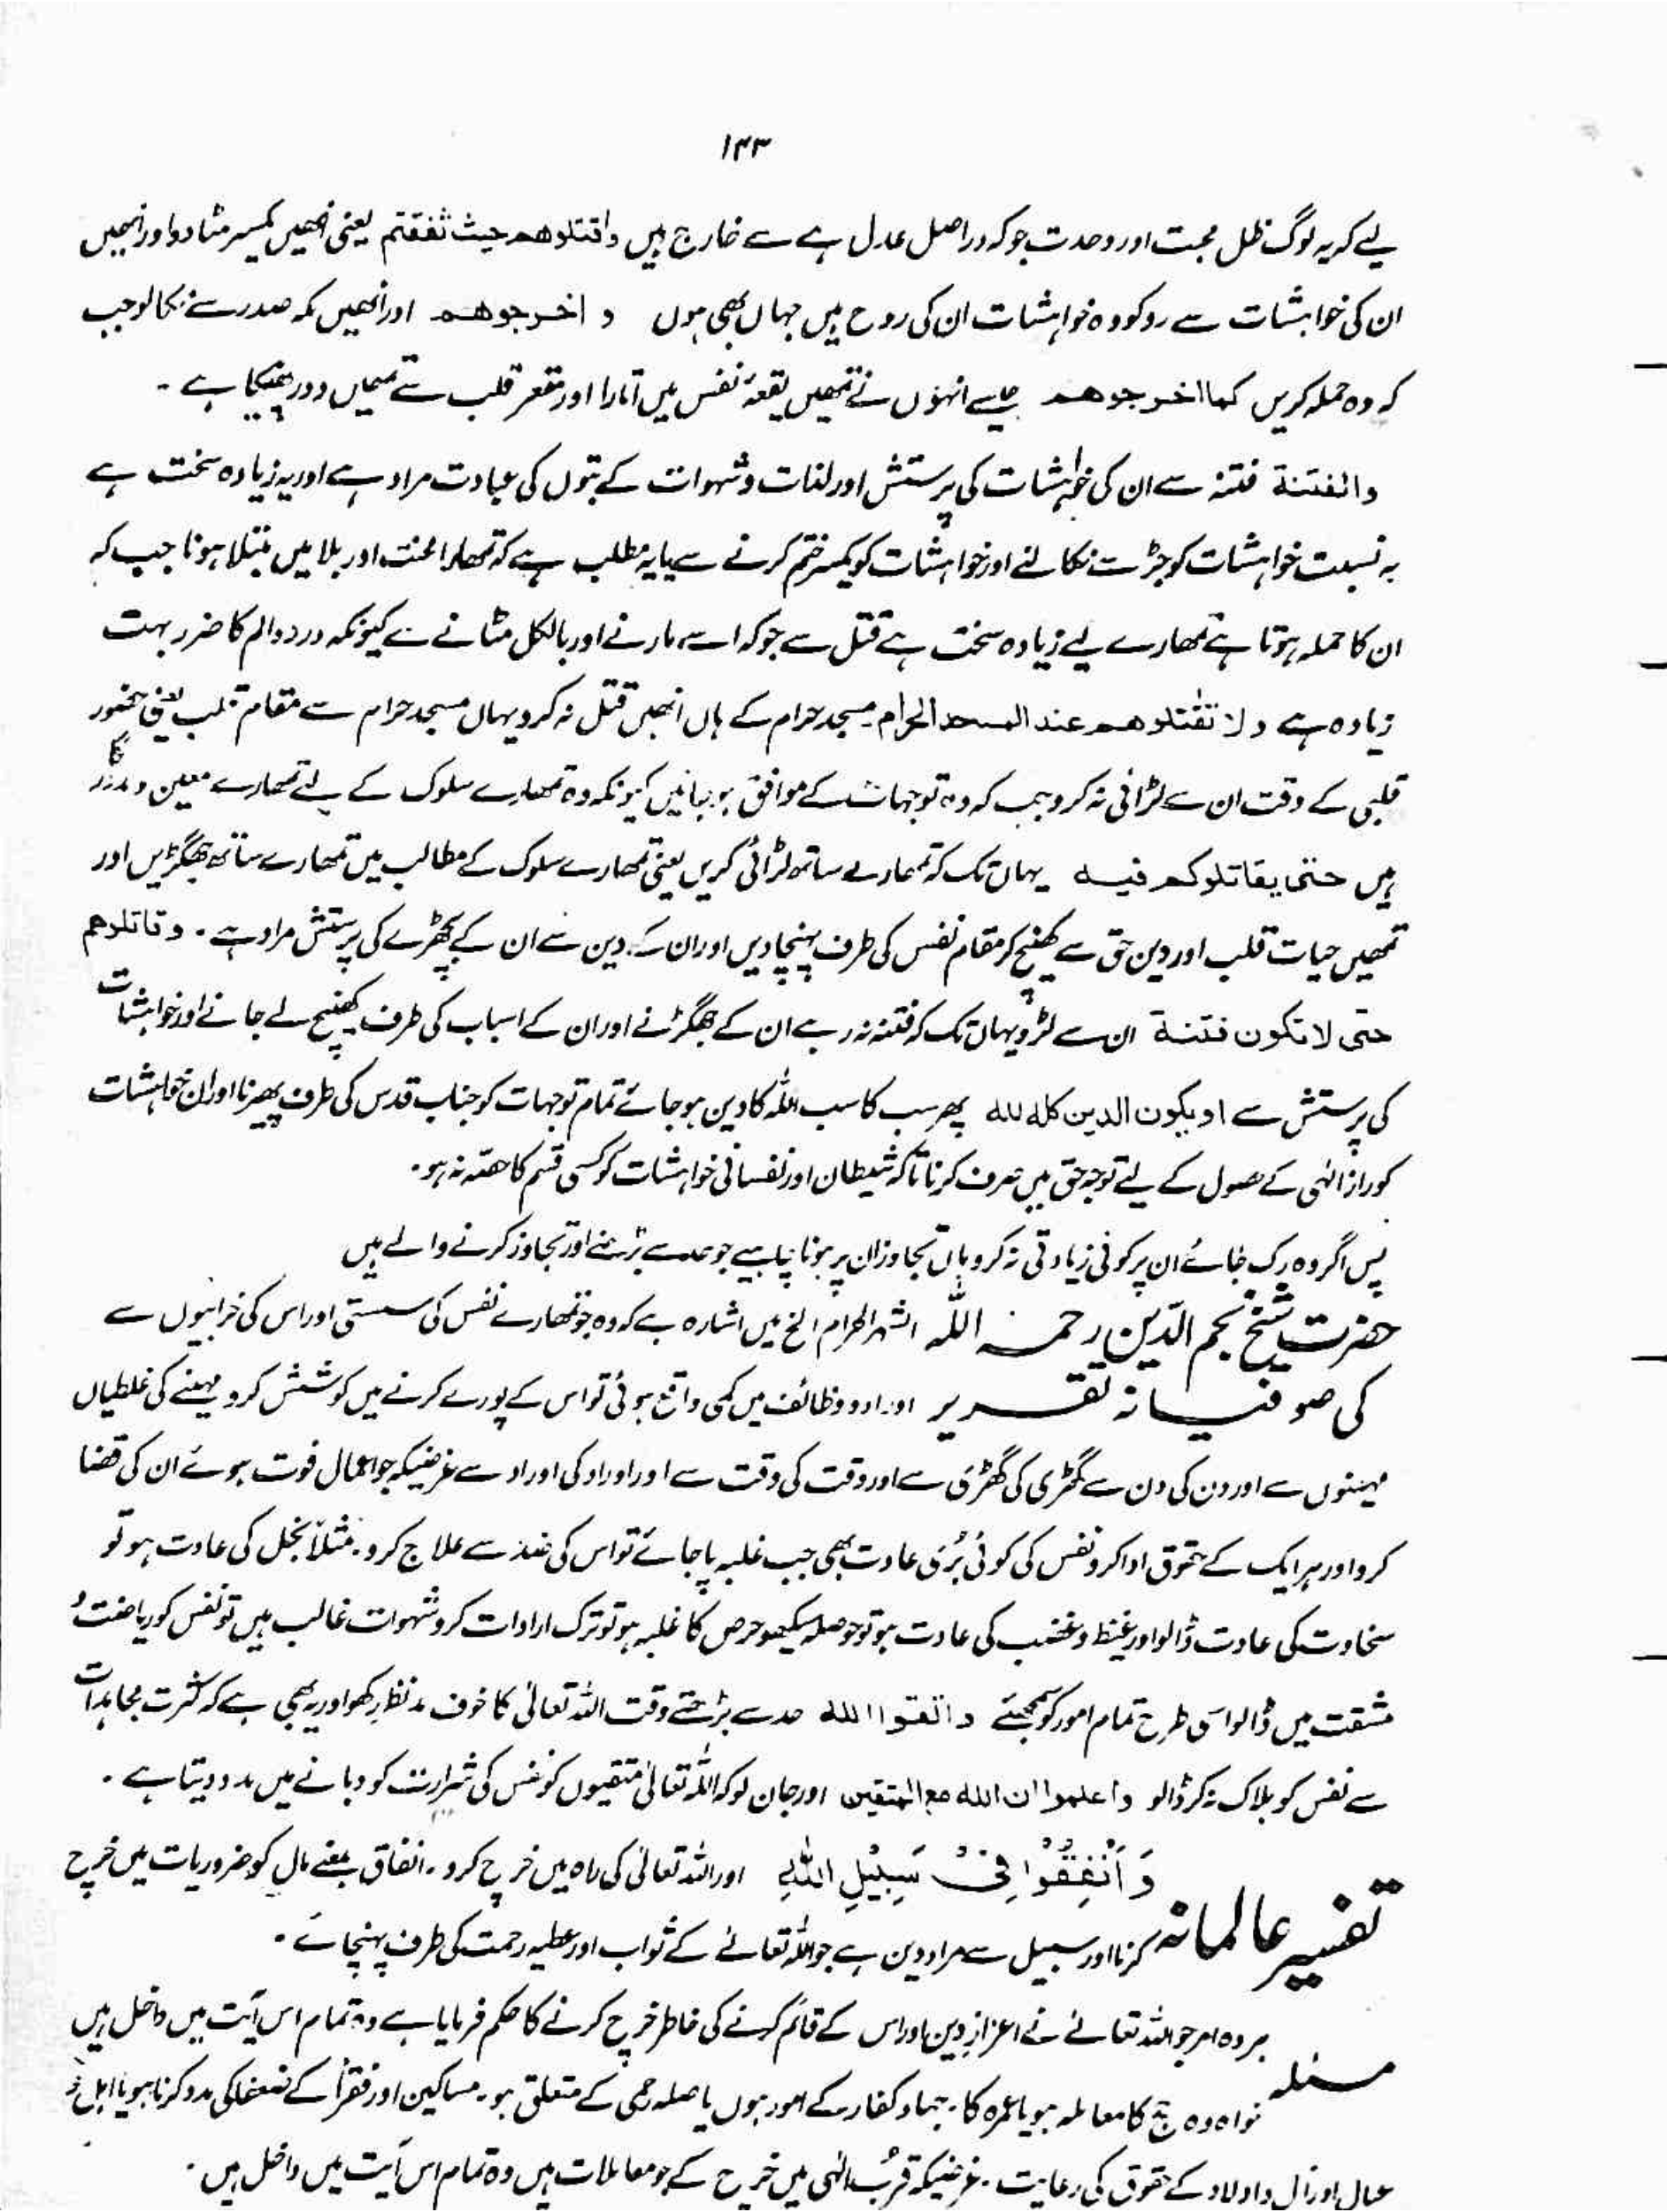 ۱۴۳
لیے کہ یہ لوگ ظل محبت اور وحدت جو کہ دراصل عدل ہے سے خارج ہیں واقتلوھم حیث ثقفتم یعنی انھیں یکسر مٹا دو اور انھیں
ان کی خواہشات سے روکو وہ خواہشات ان کی روح میں جہاں بھی ہوں و اخرجوھم اور انھیں مکہ صدر سے نکالو جب
کہ وہ حملہ کریں کما اخرجوھم جیسے انہوں نے تمھیں بقعۂ نفس میں اتارا اور مقعر قلب سے تمھیں دور پھینکا ہے ۔
والفتنة فتنہ سے ان کی خواہشات کی پرستش اور لذات و شہوات کے بتوں کی عبادت مراد ہے اور یہ زیادہ سخت ہے
بہ نسبت خواہشات کو جڑ سے نکالنے اور خواہشات کو یکسر ختم کرنے سے یا یہ مطلب ہے کہ تمھارا محنت اور بلا میں مبتلا ہونا جب کہ
ان کا حملہ ہوتا ہے تمھارے لیے زیادہ سخت ہے قتل سے جو کہ اسے مارنے اور بالکل مٹانے سے کیونکہ درد والم کا ضرر بہت
زیادہ ہے ولا تقٰتلوھم عند المسجد الحرام ۔ مسجد حرام کے ہاں انھیں قتل نہ کرو یہاں مسجد حرام سے مقام قلب یعنی حضور
قلبی کے وقت ان سے لڑائی نہ کرو جب کہ وہ توجہات کے موافق ہو جائیں کیونکہ وہ تمھارے سلوک کے لیے تمھارے معین و مددگار
ہیں حتی یقاتلوکم فیہ یہاں تک کہ تمھارے ساتھ لڑائی کریں یعنی تمھارے سلوک کے مطالب میں تمھارے ساتھ جھگڑیں اور
تمھیں حیات قلب اور دین حق سے کھینچ کر مقام نفس کی طرف پہنچا دیں اور ان کے دین سے ان کے بچھڑے کی پرستش مراد ہے ۔ وقاتلوھم
حتی لا تکون فتنة ان سے لڑو یہاں تک کہ فتنہ نہ رہے ان کے جھگڑنے اور ان کے اسباب کی طرف کھینچ لے جانے اور خواہشات
کی پرستش سے اویکون الدین کلہ للہ پھر سب کا سب اللہ کا دین ہو جائے تمام توجہات کو جناب قدس کی طرف پھیرنا اور ان خواہشات
کو راز الٰہی کے حصول کے لیے توجہ حق میں صرف کرنا تاکہ شیطان اور نفسانی خواہشات کو کسی قسم کا حصّہ نہ ہو ۔
پس اگر وہ رک جائے ان پر کوئی زیادتی نہ کرو ہاں تجاوز ان پر ہونا چاہیے جو حد سے بڑھنے اور تجاوز کرنے والے ہیں
حضرت شیخ نجم الدّین رحمہ اللّٰہ الشھر الحرام الخ میں اشارہ ہے کہ وہ جو تمھارے نفس کی سستی اور اس کی خرابیوں سے
کی صوفیانہ تقریر اوراد و وظائف میں کمی واقع ہوئی تو اس کے پورے کرنے میں کوشش کرو مہینے کی غلطیاں
مہینوں سے اور دن کی دن سے گھڑی کی گھڑی سے اور وقت کی وقت سے اور اوراد کی اوراد سے غرضیکہ جو اعمال فوت ہوئے ان کی قضا
کرو اور ہر ایک کے حقوق ادا کرو نفس کی کوئی بُری عادت بھی جب غلبہ پا جائے تو اس کی ضد سے علاج کرو ۔ مثلاً بخل کی عادت ہو تو
سخاوت کی عادت ڈالو اور غیظ و غضب کی عادت ہو تو حوصلہ سیکھو حرص کا غلبہ ہو تو ترک ارادات کرو شہوات غالب ہیں تو نفس کو ریاضت و
مشقت میں ڈالو اسی طرح تمام امور کو سمجھئے واتقوا اللہ حد سے بڑھتے وقت اللہ تعالیٰ کا خوف مد نظر رکھو اور یہ بھی ہے کہ کثرت مجاہدات
سے نفس کو ہلاک نہ کر ڈالو واعلموا ان اللہ مع المتقین اور جان لو کہ اللہ تعالیٰ متقیوں کو نفس کی شرارت کو دبانے میں مدد دیتا ہے ۔
وَ اَنْفِقُوْا فِیْ سَبِیْلِ اللّٰہِ اور اللہ تعالیٰ کی راہ میں خرچ کرو ۔ انفاق بمعنے مال کو ضروریات میں خرچ
تفسیر عالمانہ کرنا اور سبیل سے مراد دین ہے جو اللہ تعالےٰ کے ثواب اور عطیہ رحمت کی طرف پہنچائے ۔
ہر وہ امر جو اللہ تعالےٰ نے اعزازِ دین اور اس کے قائم کرنے کی خاطر خرچ کرنے کا حکم فرمایا ہے وہ تمام اس آیت میں داخل ہیں
مسئلہ خواہ وہ حج کا معاملہ ہو یا عمرہ کا ۔ جہاد کفار کے امور ہوں یا صلہ رحمی کے متعلق ہو ۔ مساکین اور فقرأ کے ضعفا کی مدد کرنا ہو یا اہل و
عیال اور آل و اولاد کے حقوق کی رعایت ۔ غرضیکہ قربِ الٰہی میں خرچ کے جو معاملات ہیں وہ تمام اس آیت میں داخل ہیں ۔